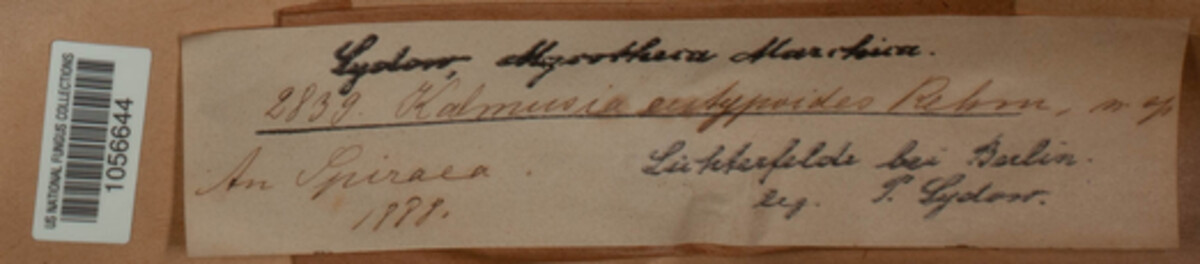 US NATIONAL FUNGUS COLLECTIONS
1056644
Sydow, Mycotheca Marchica.
2839. Kalmusia eutypoides Rehm, n. sp
An Spiraea.
1888.
Lichterfelde bei Berlin.
leg. P. Sydow.